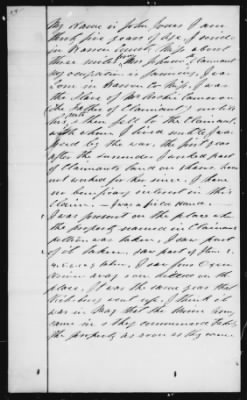 My name is John Jones I am
thirty five years of age. I reside
in Warren County, Miss about
three miles from Claimant
My occupation is farming. I was
born in Warren Co Miss. I was
the slave of
the Father of Claimant until
his death, I then fell to the Claimant,
with whom I lived until I was
freed by the war. The first year
after the surrender I worked part
of Claimants land on shares have
not worked for her since. I have
no beneficial interest in this
Claim.
I was present on the place when
the property named in Claimants
petition was taken. I saw part
of it taken,
taken. I saw
away on the
place. It was the same year that
Vicksburg went up. I think it
was in May that the
came in & they commenced taking
the property as soon as they came